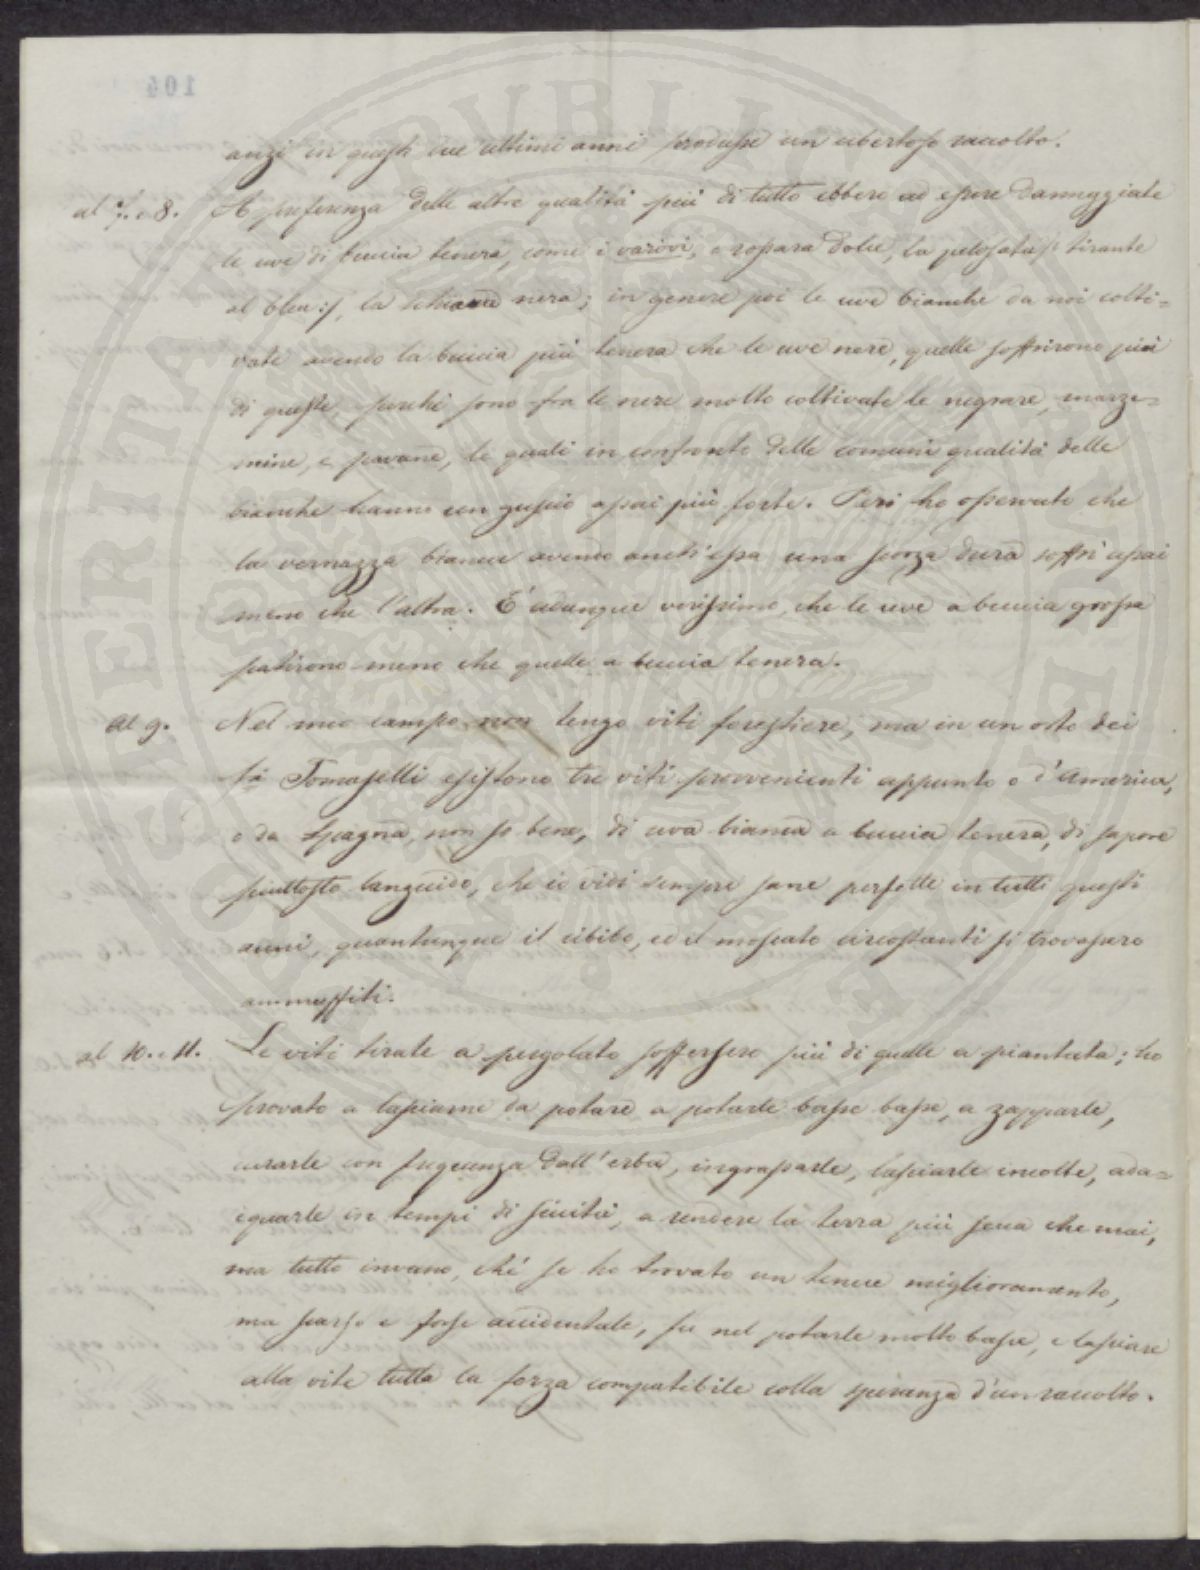 anzi in questi due ultimi anni produsse un ubertoso raccolto.
al 7. e 8. A preferenza delle altre qualità più di tutto ebbero ad essere danneggiate
le uve di buccia tenera, come i varovi, o rossara dolce, la pelosata |: tirante
al bleu :|, la schiava nera; in genere poi le uve bianche da noi colti=
vate avendo la buccia più tenera che le uve nere, quelle soffrirono più
di queste, perchè sono fra le nere molto coltivate le negrare, marze=
mine, e pavane, le quali in confronto delle comuni qualità delle
bianche hanno un guscio assai più forte. Però ho osservato che
la vernazza bianca avendo anch'essa una scorza dura soffrì assai
meno che l'altra. E' adunque verissimo, che le uve a buccia grossa
patirono meno che quelle a buccia tenera.
al 9. Nel mio campo non tengo viti forestiere, ma in un orto dei
Tomaselli esistono tre viti provvenienti appunto o d'America,
o da Spagna, non so bene, di uva bianca a buccia tenera, di sapore
piuttosto languido, che io vidi sempre sane perfette in tutti questi
anni, quantunque il cibibo, ed il moscato circostanti si trovassero
ammuffiti.
al 10. e 11. Le viti tirate a pergolato soffersero più di quelle a piantata; ho
provato a lasciarne da potare a potarle basse basse, a zapparle,
curarle con frequenza dall'erba, ingrassarle, lasciarle incolte, ada=
cquarle in tempi di siccità, a rendere la terra più secca che mai,
ma tutto invano, chè se ho trovato un tenue miglioramento,
ma scarso e forse accidentale, fu nel potarle molto basse, e lasciare
alla vite tutta la forza compatibile colla speranza d'un raccolto.